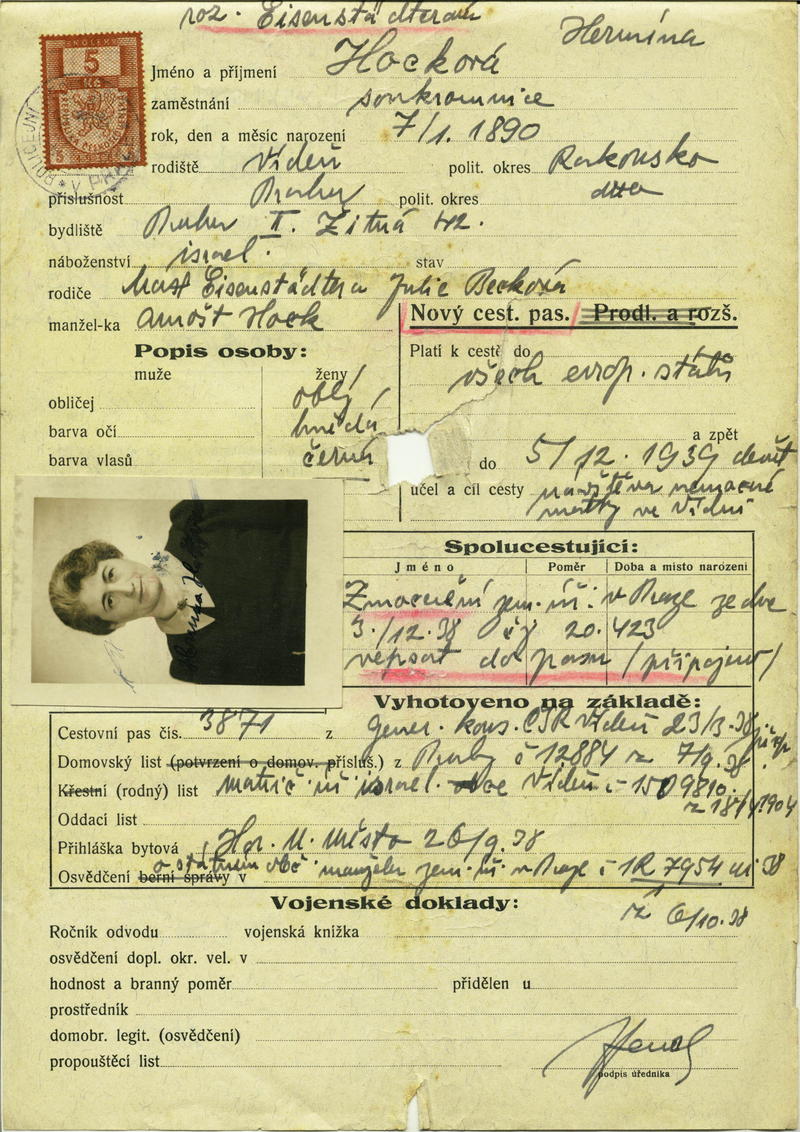 roz. Eisenstädterová
Hermína
5
Kč
POLICEJNÍ
V PRAZE
Jméno a příjmení Hocková
zaměstnání soukromnice
rok, den a měsíc narození 7/1. 1890
rodiště Vídeň polit. okres Rakousko
příslušnost Praha polit. okres dtto
bydliště Praha II. Žitná 42.
náboženství israel. stav
rodiče Eisenstädter a Julie Becková
manžel-ka Arnošt Hock
Nový cest. pas. Prodl. a rozš.
Popis osoby:
muže ženy
obličej oblý
barva očí hnědá
barva vlasů černá
Platí k cestě do
všech evrop. států
a zpět
do 5/12. 1939
účel a cíl cesty návštěva nemocné
matky ve Vídni
Spolucestující:
Jméno Poměr Doba a místo narození
Zmocnění zem. úř. v Praze ze dne
3./12.38 čj 20.423
vepsat do pasu /připojeno/
Vyhotoveno na základě:
Cestovní pas čís. 3871 z gener. kons. ČSR Vídeň 23/3.38
Domovský list (potvrzení o domov. přísluš.) z Prahy č 12884 z 7/9.38
Křestní (rodný) list matrič. úř. israel. obce Vídeň č
z 18/4 1904
Oddací list
Přihláška bytová Hor. M. Místo 26/9.38
Osvědčení berní správy v o státním obč. manžela zem. úř. v Praze č 1R 7954 ai 38
z 6/10.38
Vojenské doklady:
Ročník odvodu vojenská knížka
osvědčení dopl. okr. vel. v
hodnost a branný poměr přidělen u
prostředník
domobr. legit. (osvědčení)
propouštěcí list
podpis úředníka